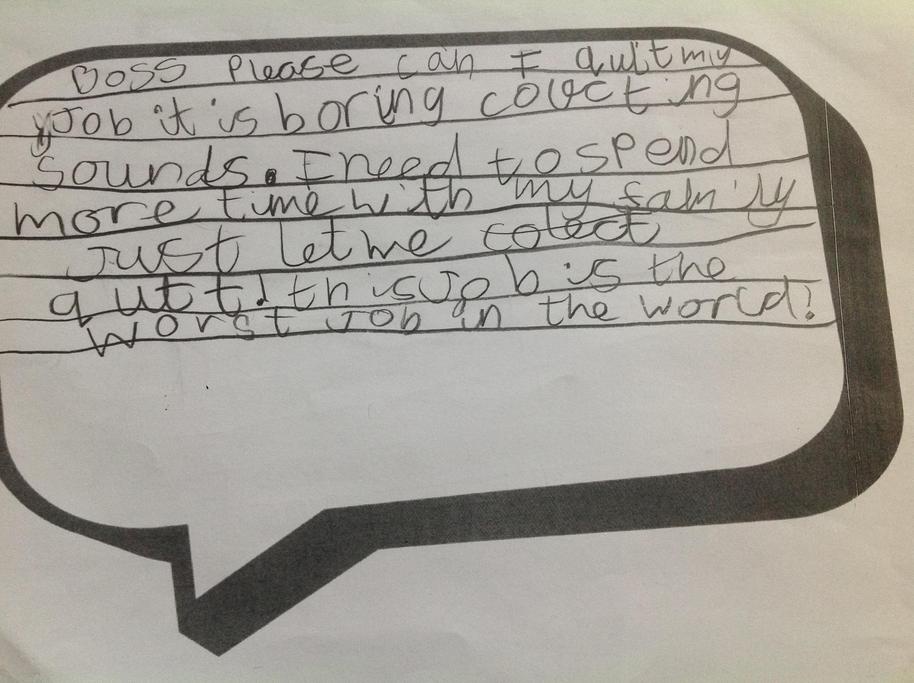 Boss Please can I quit my
Job it is boring colecting
Sounds. I need to spend
more time with my family
Just let me colect
quitt! this Job is the
worst Job in the world!